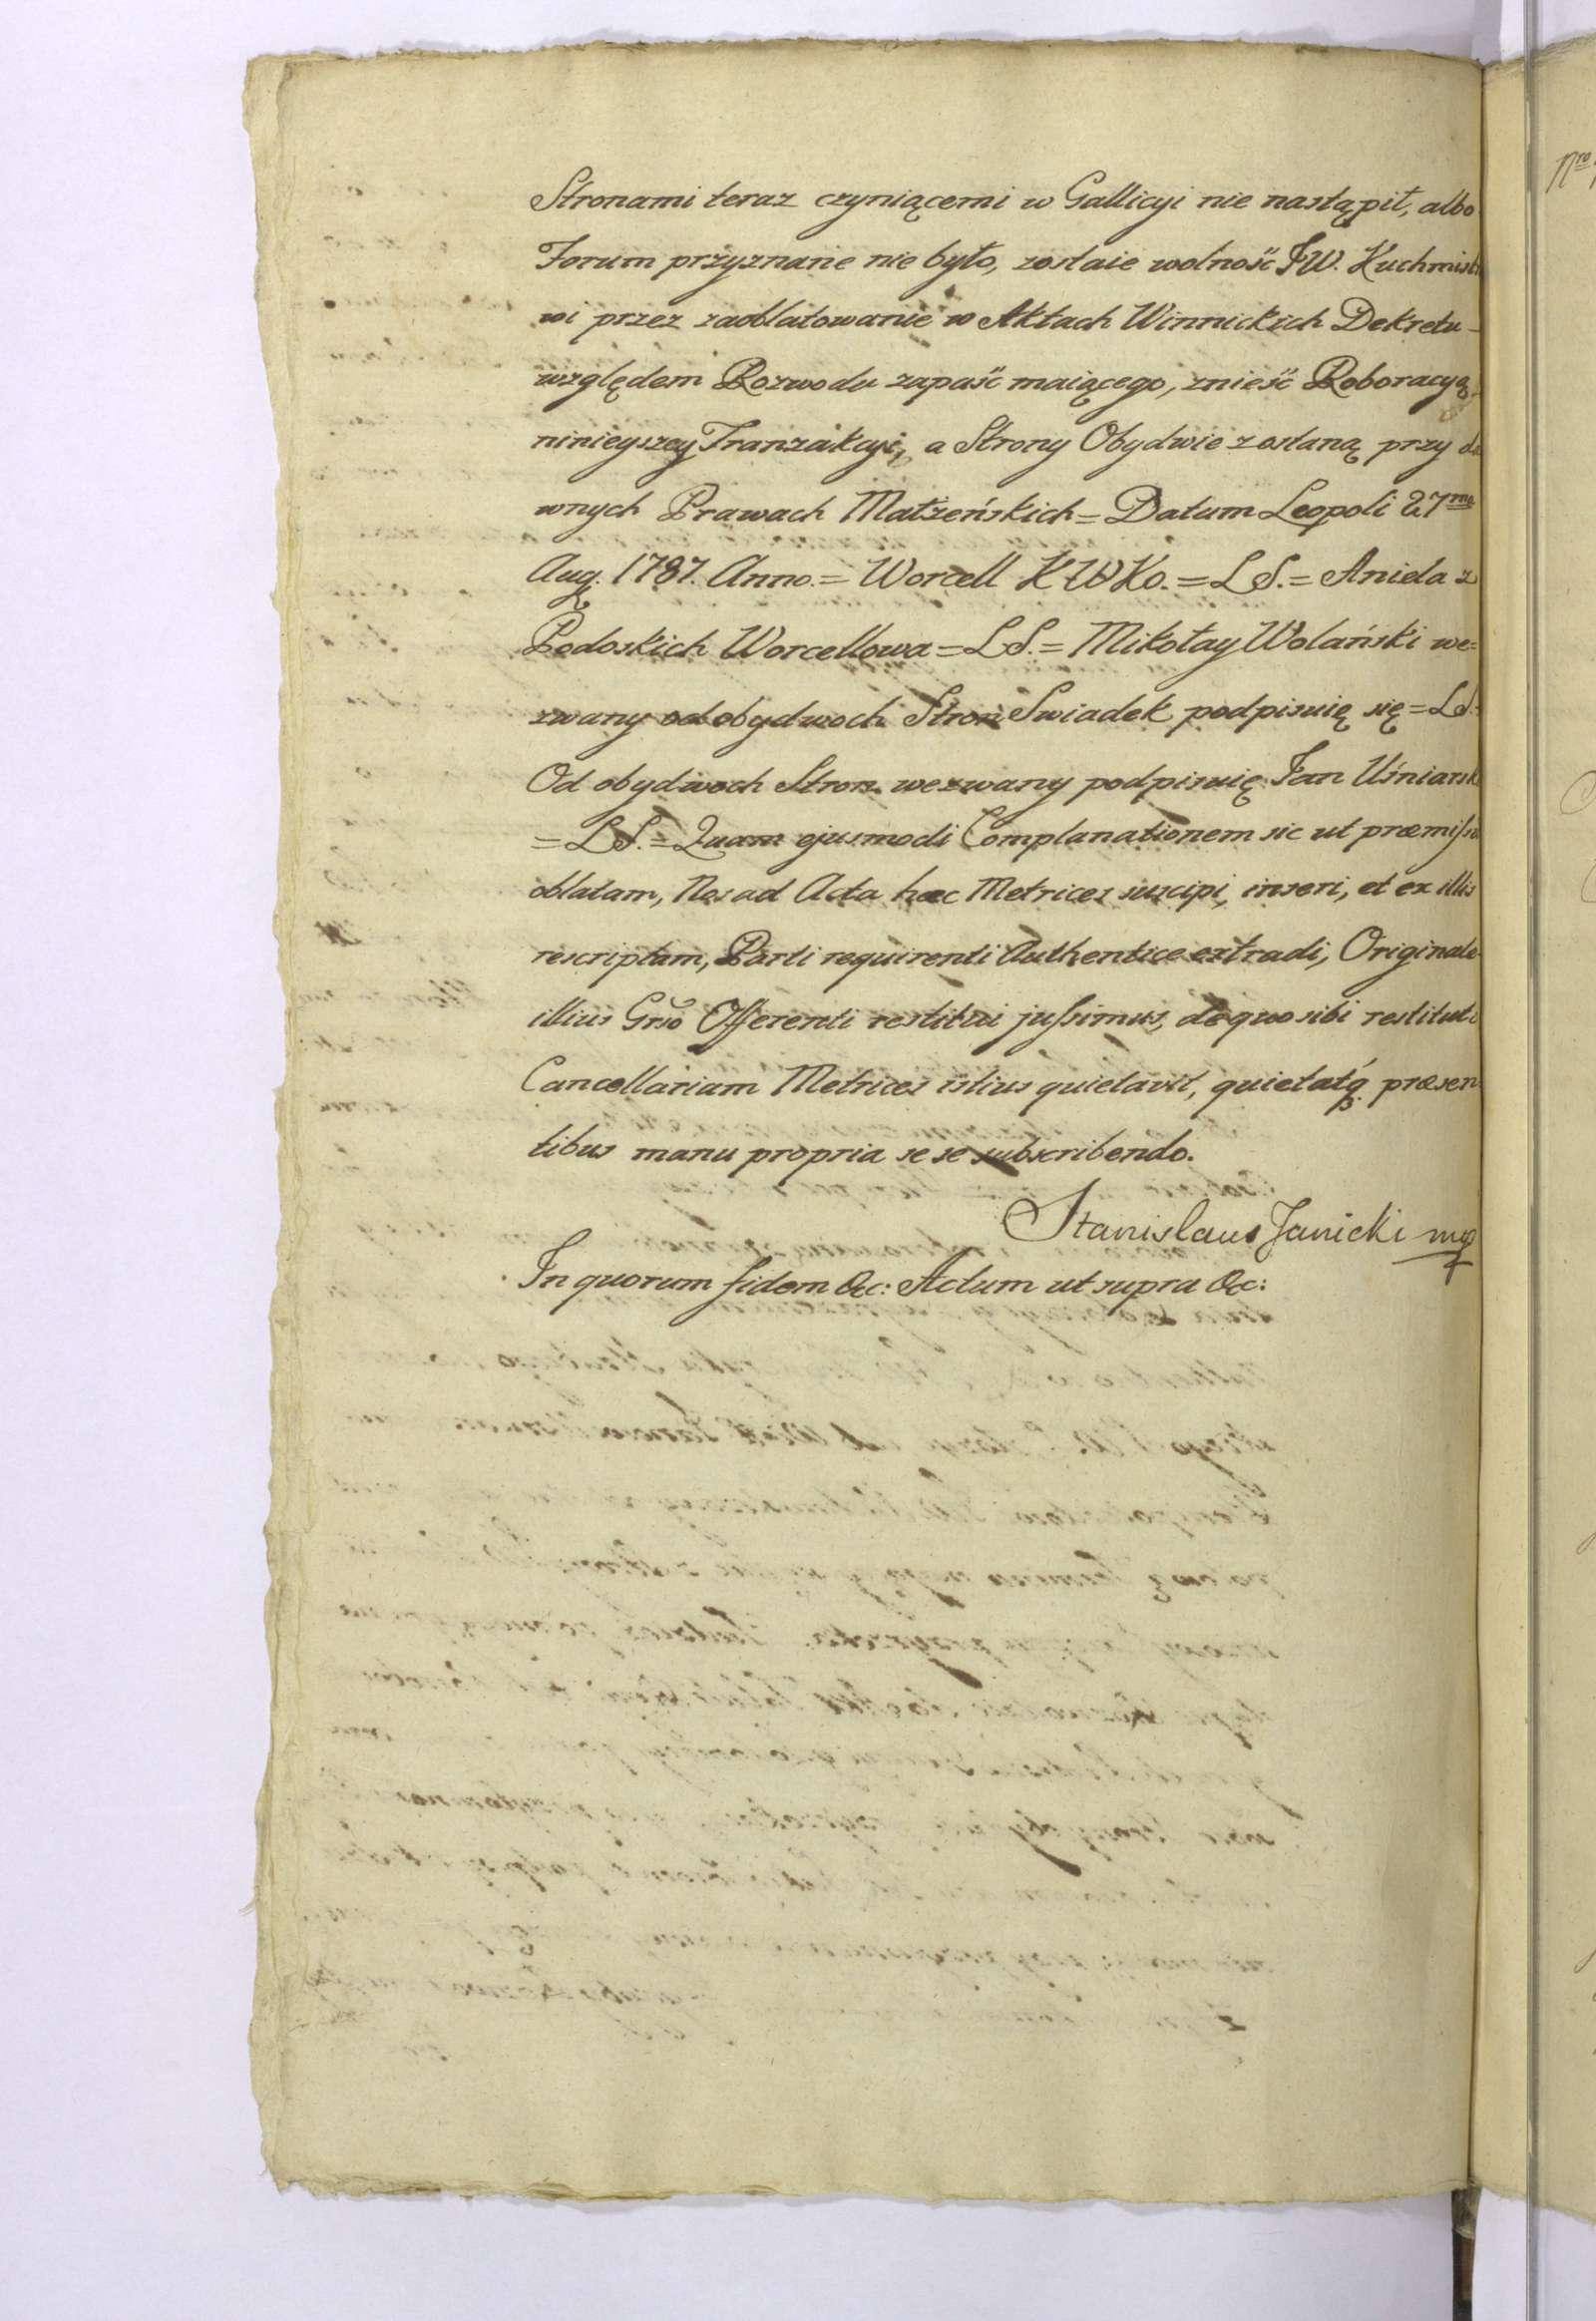 Stronami teraz czyniącemi w Gallicyi nie nastąpił, albo
Forum przyznane nie było, zostaie wolność JW. Kuchmist
wi przez zaoblatowanie w Aktach Winnickich Dekretu
względem Rozwodu zapaść maiącego, znieść Roboracyą
ninieyszey Tranzakcyi, a Strony Obydwie zostaną przy da
wnych Prawach Małżeńskich = Datum Leopoli 27ma
Aug. 1787. Anno. = Worcell KWKo. = LS. = Aniela z
Podoskich Worcellowa = LS. = Mikołay Wolański we=
zwany od obydwoch Stron Swiadek podpisuię się = LS.=
Od obydwoch Stron wezwany podpisuię Jan Uśniarsk
= LS. = Quam ejusmodi Complanationem sic ut præmiſsu
oblatam, Nos ad Acta hæc Metrices suscipi, inseri, et ex illis
rescriptam, Parti requirenti Authentice extradi, Originale
illius Grso Offerenti restitui juſsimus, de quo sibi restituto
Cancellariam Metrices istius quietavit, quietatq præsen
tibus manu propria se se subscribendo.
Stanislaus Janicki mp
In quorum fidem &c: Actum ut supra &c:
Nro